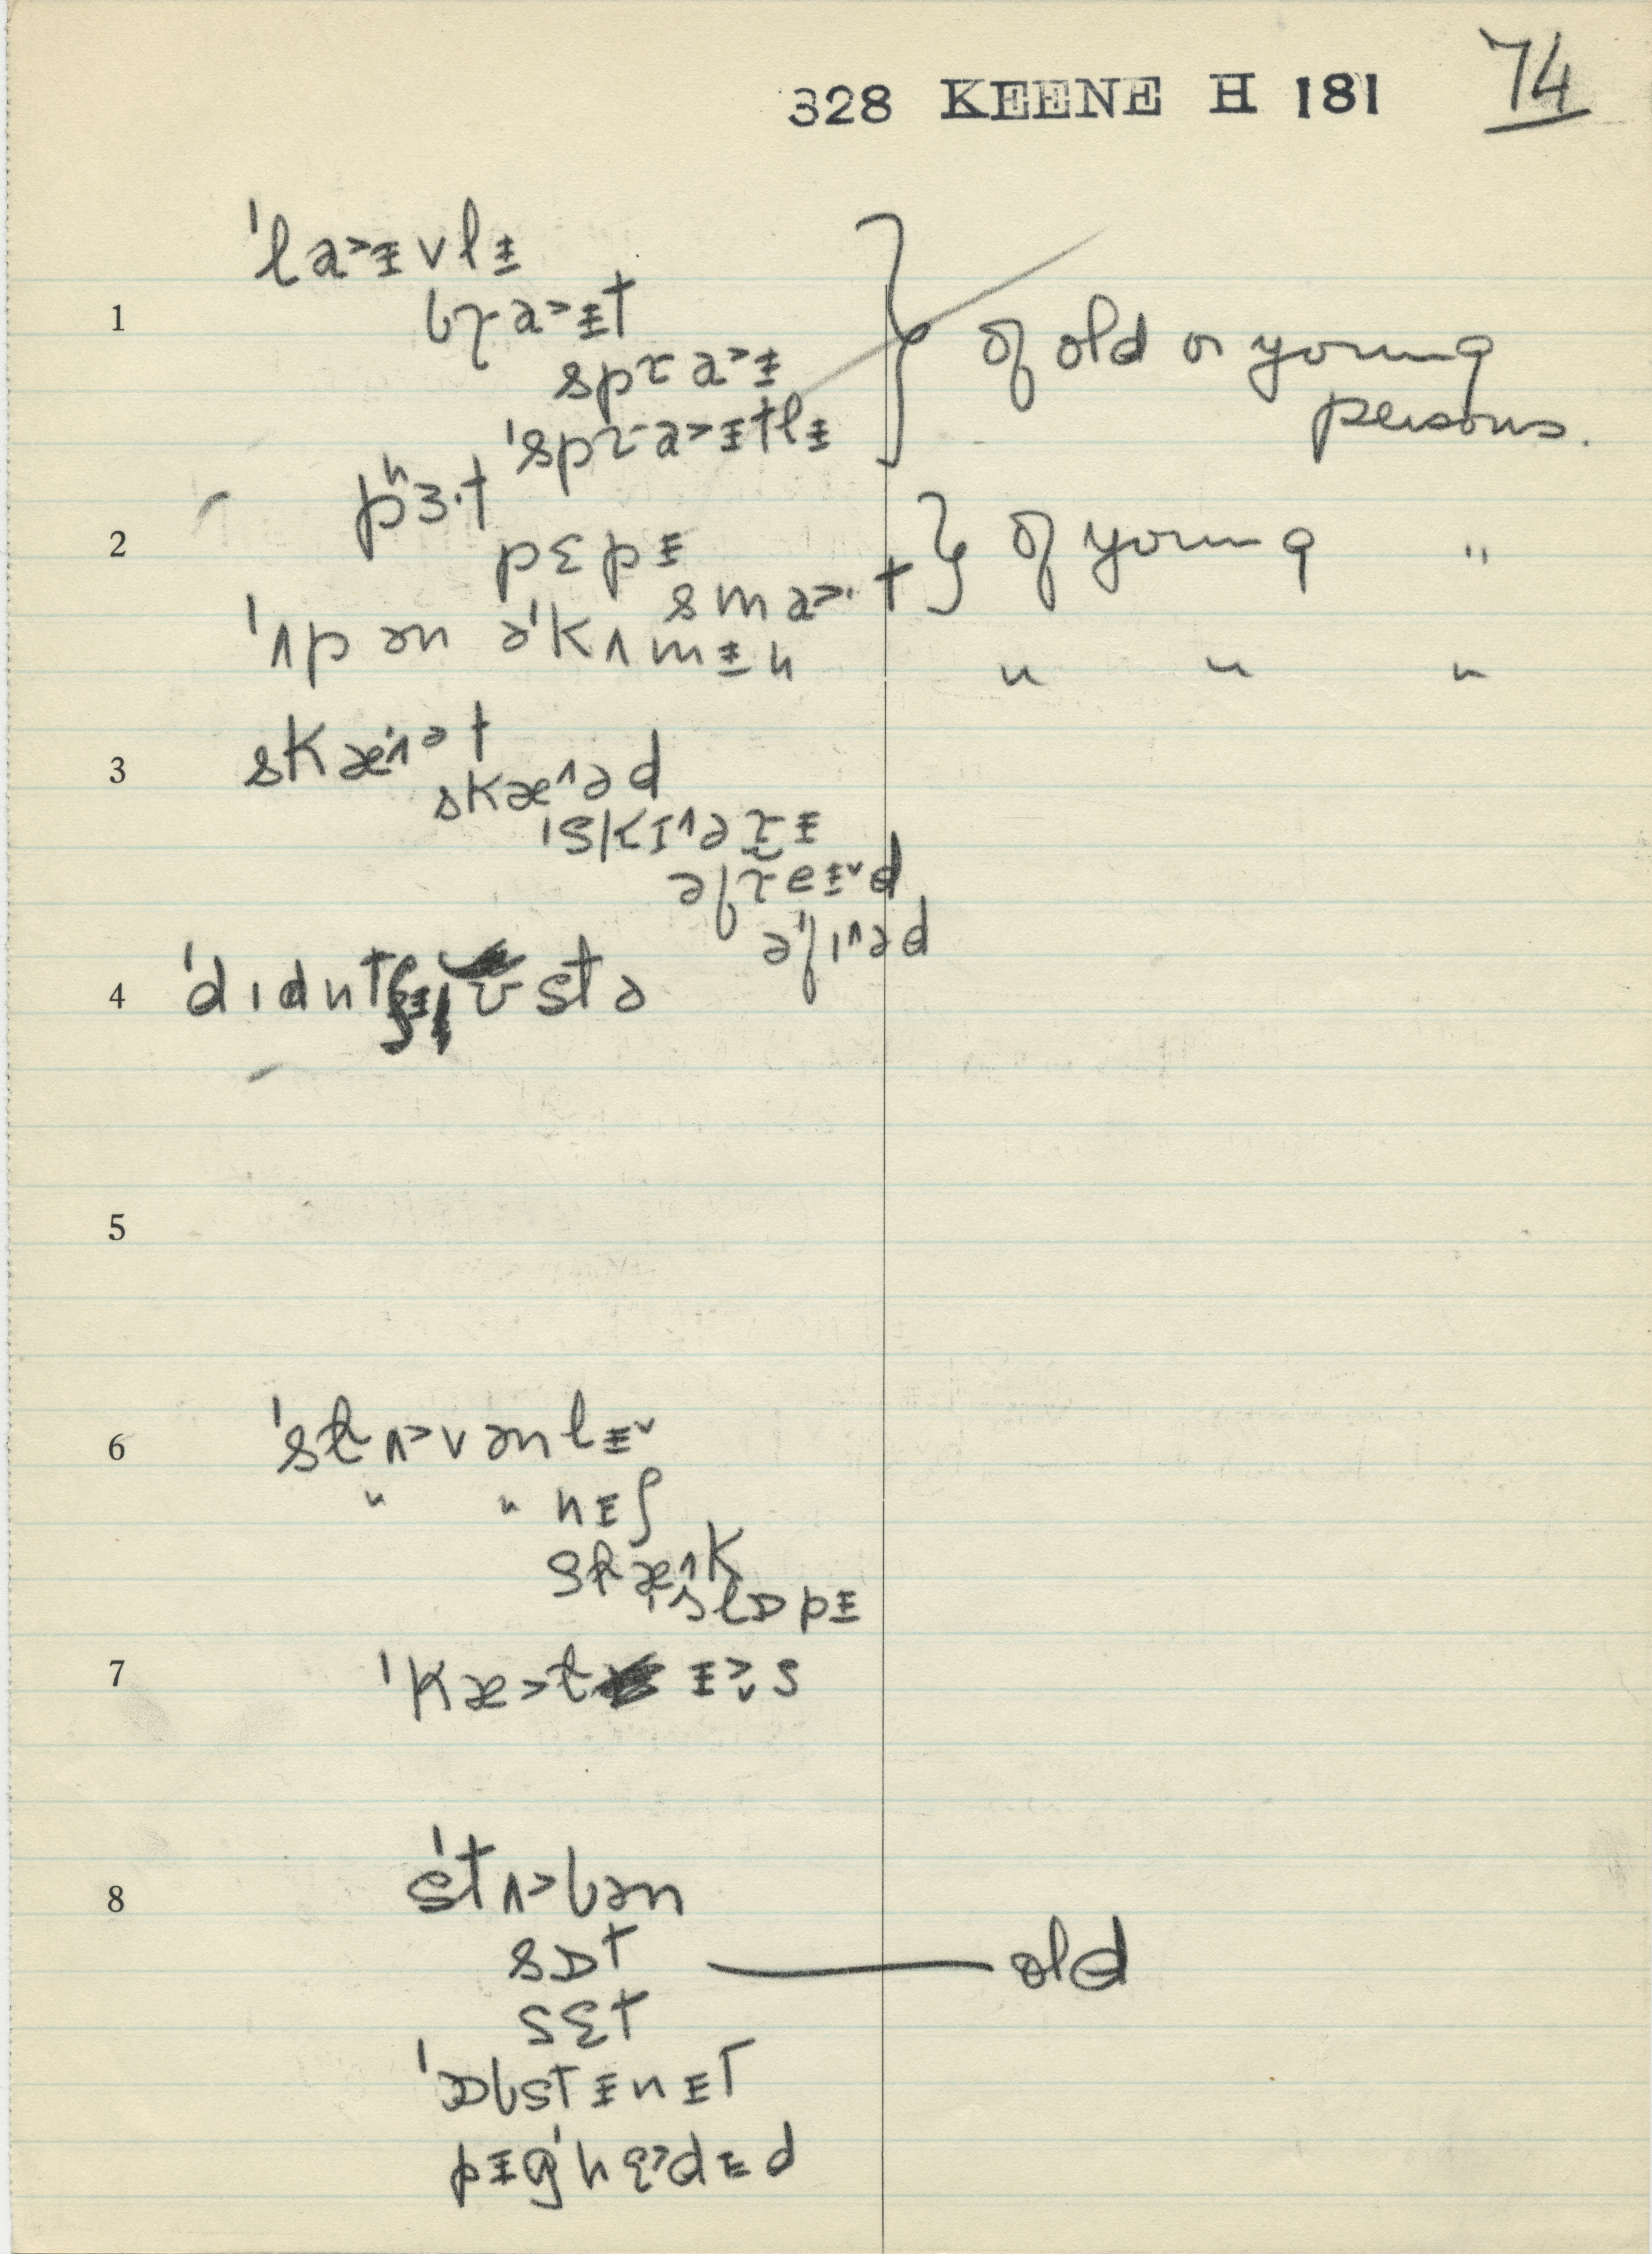 328 KEENE H 181 74
1
ˈla˃ɪvlɪ
bɾa˃ɪt
spɾa˃ɪ
ˈspɾa˃ɪtlɪ
} of old or young persons.
2
pʰɜ·t
pɛpɪ
sma˃·t
} of young "
ˈʌp ən əˈkʌmɪn " " "
3
skæˈ˄ət
skæ˄əd
ˈskɪ˄əɾɪ
əfɾeɪ˅d
əˈfɪ˄əd
4
ˈdɪdnt ʊstə
5
6
ˈstʌ˃vənlɪ˅
" " nɪʃ
stæ˄k
ˈslɒpɪ
7
ˈkæ˃t ɪs
8
ˈstʌ˃bən
sɒt —— old
sɛt
ˈɒbstɪnɪt
pɪgˈhɛ˃dɪd